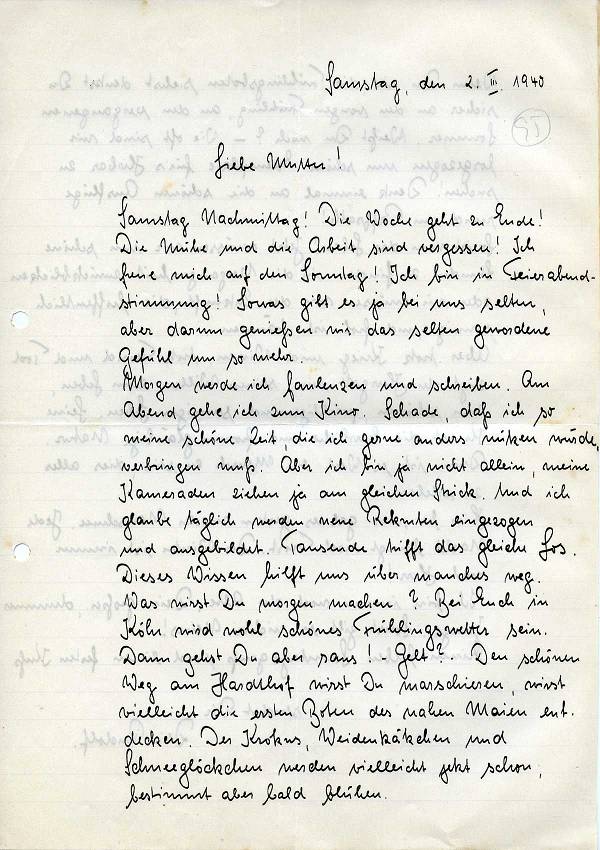 Samstag, den 2. III. 1940
55
Liebe Mutter!
Samstag Nachmittag! Die Woche geht zu Ende!
Die Mühe und die Arbeit sind vergessen! Ich
freue mich auf den Sonntag! Ich bin in Feierabend-
stimmung! Sowas gibt es ja bei uns selten,
aber darum genießen wir das selten gewordene
Gefühl um so mehr.
Morgen werde ich faulenzen und schreiben. Am
Abend gehe ich zum Kino. Schade, daß ich so
meine schöne Zeit, die ich gerne anders nützen würde,
verbringen muß. Aber ich bin ja nicht allein, meine
Kameraden ziehen ja am gleichen Strick. Und ich
glaube täglich werden neue Rekruten eingezogen
und ausgebildet. Tausende trifft das gleiche Los.
Dieses Wissen hilft uns über manches weg.
Was wirst Du morgen machen? Bei Euch in
Köln wird wohl schönes Frühlingswetter sein.
Dann gehst Du aber raus! - Gelt?. Den schönen
Weg am Hardthof wirst Du marschieren, wirst
vielleicht die ersten Boten des nahen Maien ent-
decken. Der Krokus, Weidenkätkchen und
Schneeglöckchen werden vielleicht jetzt schon,
bestimmt aber bald blühen.